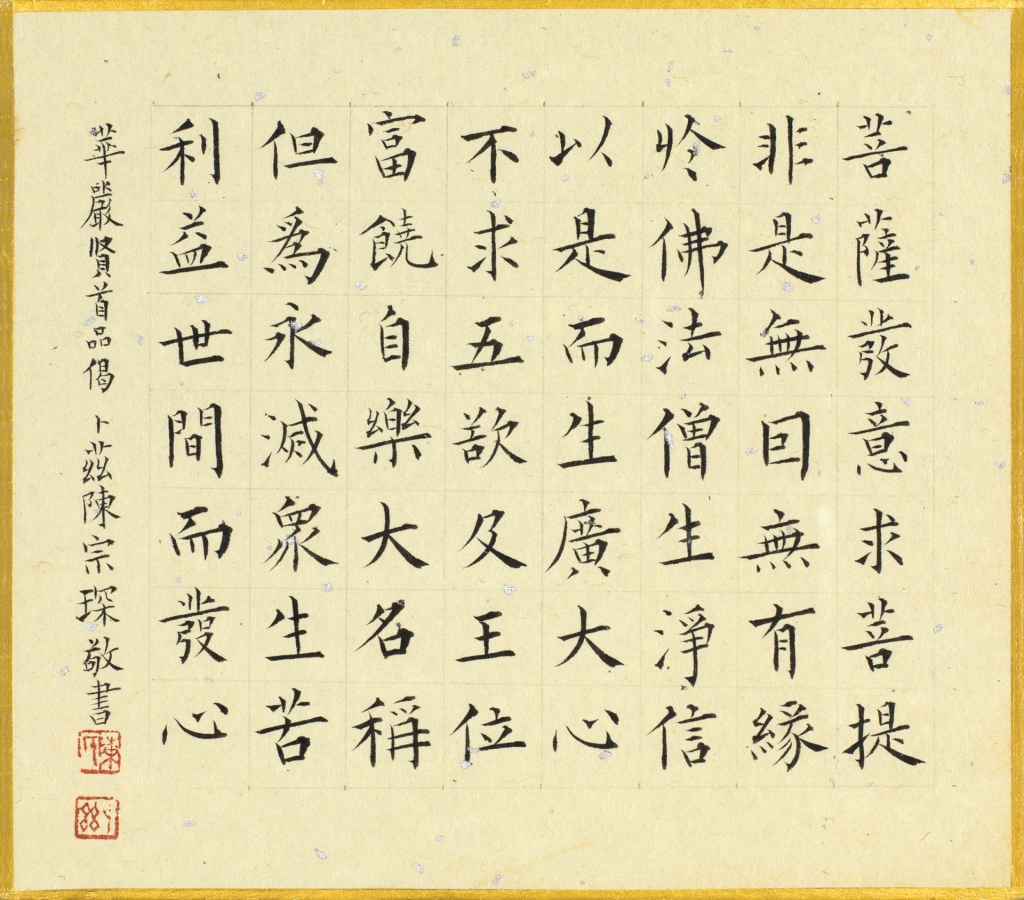 菩薩發意求菩提
非是無因無有緣
於佛法僧生淨信
以是而生廣大心
不求五欲及王位
富饒自樂大名稱
但為永滅眾生苦
利益世間而發心
華嚴賢首品偈 卜茲陳宗琛敬書